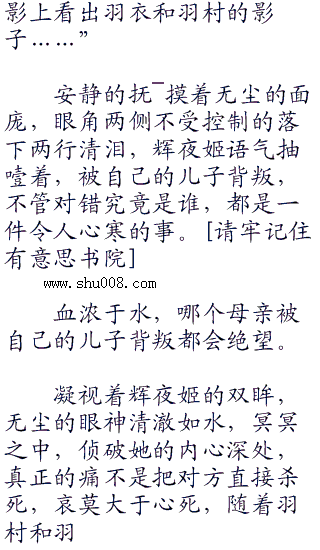 影上看出羽衣和羽村的影
子……”
安静的抚¯摸着无尘的面
庞，眼角两侧不受控制的落
下两行清泪，辉夜姬语气抽
噎着，被自己的儿子背叛，
不管对错究竟是谁，都是一
件令人心寒的事。[请牢记住
有意思书院]
www.shu008.com
血浓于水，哪个母亲被
自己的儿子背叛都会绝望。
凝视着辉夜姬的双眸，
无尘的眼神清澈如水，冥冥
之中，侦破她的内心深处，
真正的痛不是把对方直接杀
死，哀莫大于心死，随着羽
村和羽